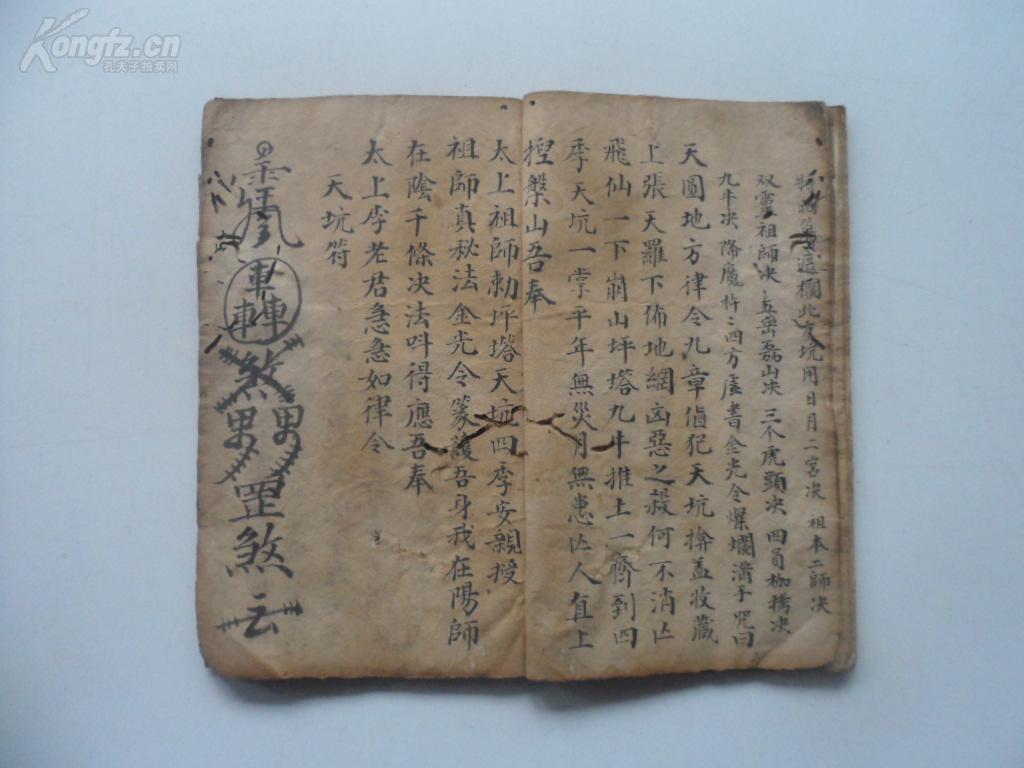 Kongfz.cn
孔夫子拍卖网
欄此天坑用日月二宮决 祖本二師决
双雷祖師决 五岳磊山决 三个虎頭决 四員枷拷决
九牛决 降魔杵〻四方虛書金光令爆爛滿手咒曰
天圓地方律令九章偹犯天坑捹盖收藏
上張天羅下佈地網凶惡之殺何不消亡
飛仙一下崩山坪塔九牛推上一齊到四
季天坑一掌平年無災月無患亡人直上
揑槃山吾奉
太上祖師勅坪塔天坑四季安親授
祖師真秘法金光令篆護吾身我在陽師
在陰千條决法呌得應吾奉
太上李老君急急如律令
天坑符
煞
罡煞
云